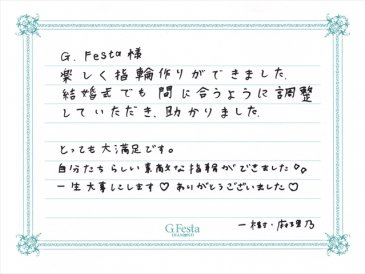 G. Festa様
楽しく指輪作りができました.
結婚式でも間に合うように調整
していただき、助かりました.
とっても大満足です。
自分たちらしい素敵な指輪ができました
一生大事にします♡ ありがとうございました♡
一樹・麻理乃
G.Festa